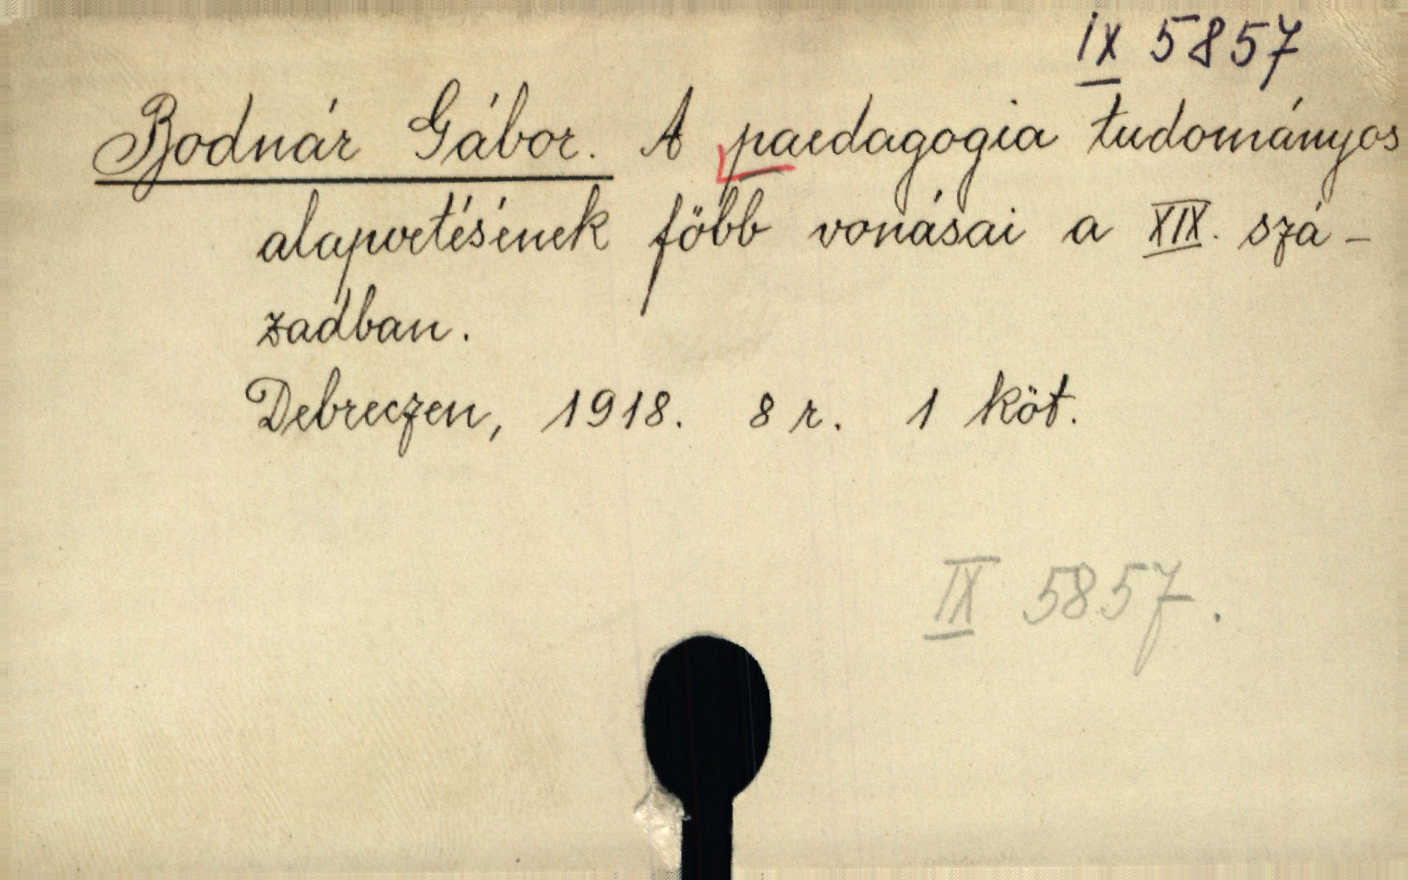 IX 5857
Bodnár Gábor. A paedagogia tudományos
alapvetésének föbb vonásai a XIX. szá-
zadban.
Debreczen, 1918. 8 r. 1 köt.
IX 5857.